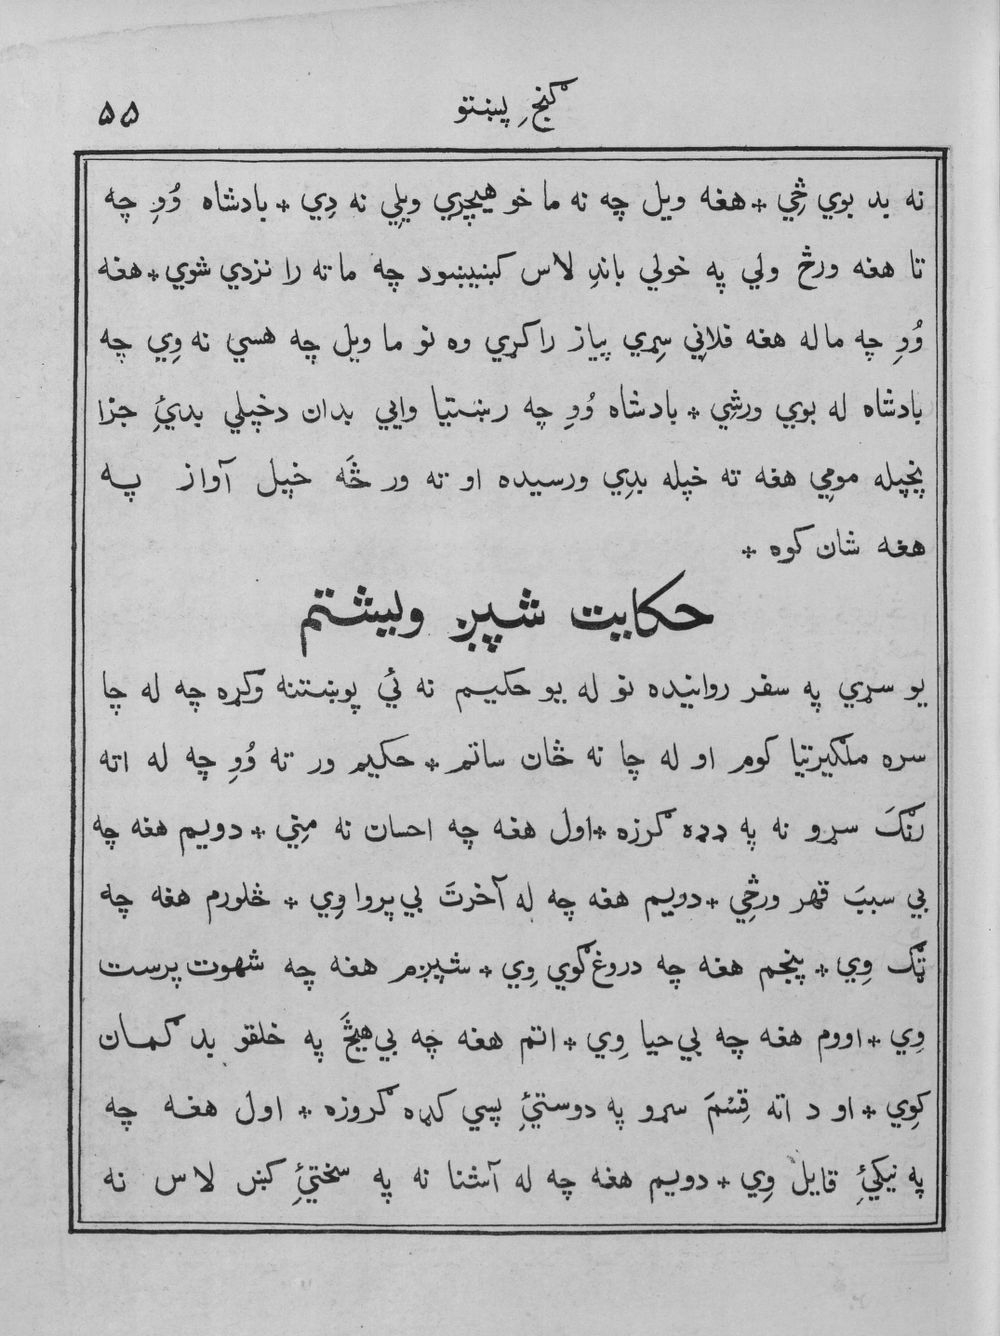 ۵۵
گنجِ پښتو
نه بد بوي څي * هغه ويل چه نه ما خو هيچري ويلي نه دِي * بادشاه وُوِ چه
تا هغه ورځ ولي په خولي باندِ لاس کښيښود چه ما ته را نزدي شوي * هغه
وُوِ چه ما له هغه فلاني سړي پياز راکړي وه نو ما ويل چه هسي نه وِي چه
بادشاه له بوي ورشِي * بادشاه وُوِ چه رښتيا وايي بدان دخپلي بدئِ جزا
پخپله مومِي هغه ته خپله بدِي ورسيده او ته ور څَه خپل آواز په
هغه شان کوه *
حکايت شپږ ويشتم
يو سړي په سفر روانيده نو له يو حکيم نه ئي پوښتنه وکړه چه له چا
سره ملګيرتيا کوم او له چا نه ځان ساتم * حکيم ور ته وُوِ چه له اته
رنګَ سړو نه په ډډه ګرزه * اول هغه چه احسان نه مِني * دويم هغه چه
بي سببَ قهر ورځِي * دويم هغه چه له آخرتَ بي پروا وِي * څلورم هغه چه
ټګ وِي * پنجم هغه چه دروغ ګوي وِي * شپږم هغه چه شهوت پرست
وِي * اووم هغه چه بي حيا وِي * اتم هغه چه بي هيڅَ په خلقو بد ګمان
کوِي * او د اته قِسْمَ سړو په دوستئِ پسي کړه ګروزه * اول هغه چه
په نيکئِ قايل وِي * دويم هغه چه له آشنا نه په سختئِ کښ لاس نه